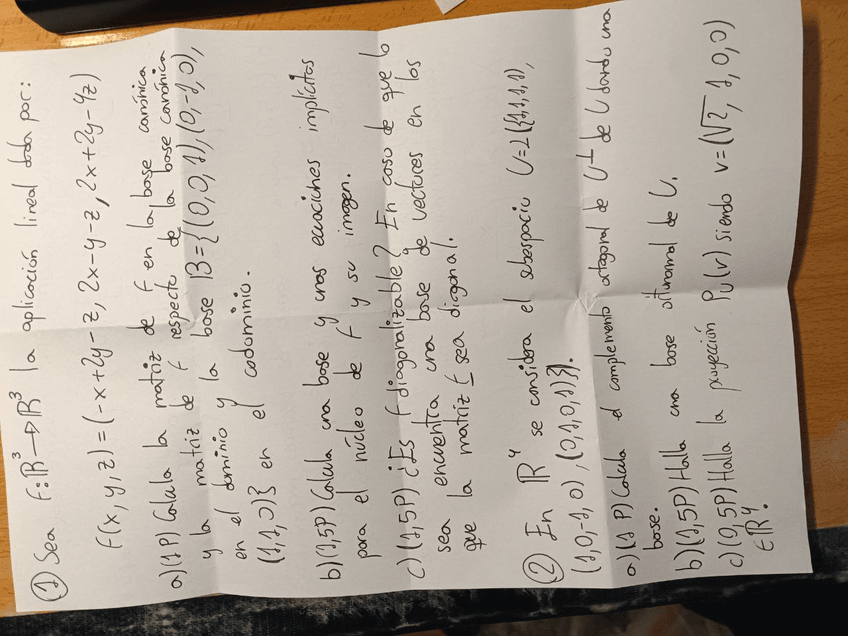 ① Sea f:ℝ³→ℝ³ la aplicación lineal dada por:
f(x, y, z) = (-x+2y-z, 2x-y-z, 2x+2y-4z)
a)(1P) Calcula la matriz de f en la base canónica
y la matriz de f respecto de la base canónica
en el dominio y la base B={(0,0,1),(0,-1,0),
(1,1,0)} en el codominio.
b)(1,5P) Calcula una base y unas ecuaciones implícitas
para el núcleo de f y su imagen.
c)(1,5P) ¿Es f diagonalizable? En caso de que lo
sea encuentra una base de vectores en los
que la matriz f sea diagonal.
② En ℝ⁴ se considera el subespacio U=L({(1,1,1,1),
(1,0,-1,0),(0,1,0,1)}).
a)(1P) Calcula el complemento ortogonal de U⊥ de U dando una
base.
b)(1,5P) Halla una base ortonormal de U.
c)(0,5P) Halla la proyección P_U(v) siendo v=(√2, 1, 0, 0)
∈ℝ⁴.